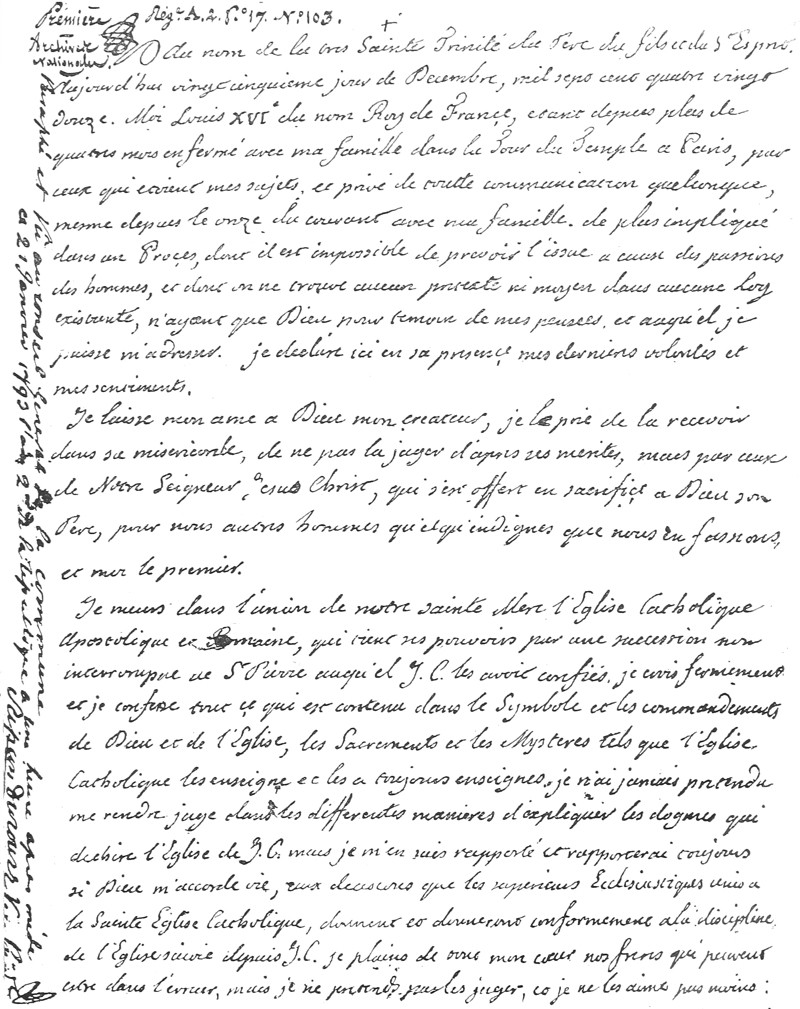 Première Rég.re A. 2. P.o 17. N.o 103.
Archives
Nationales
Au nom de la tres Sainte Trinité du Pere du fils et du St Esprit.
Aujourd'hui vingt cinquieme jour de Decembre, mil sept cent quatre vingt
douze. Moi Louis XVIe du nom Roy de France, etant depuis plus de
quatres mois enfermé avec ma famille dans la Tour du Temple a Paris, par
ceux qui etoient mes sujets, et privé de toutte communication quelconque,
mesme depuis le onze du courant avec ma famille. de plus impliqué
dans un Procès, dont il est impossible de prevoir l'issue a cause des passions
des hommes, et dont on ne trouve aucun pretexte ni moyen dans aucune Loy
existante, n'ayant que Dieu pour temoin de mes pensées, et auquel je
puisse m'adresser. je declare ici en sa presence mes dernieres volontés et
mes sentiments.
Je laisse mon ame a Dieu mon createur, je le prie de la recevoir
dans sa misericorde, de ne pas la juger d'apres ses merites, mais par ceux
de Notre Seigneur Jesus Christ, qui s'est offert en sacrifice a Dieu son
Pere, pour nous autres hommes quelqu'indignes que nous en fussions,
et moi le premier.
Je meurs dans l'union de notre sainte Mere l'Eglise Catholique
Apostolique et Romaine, qui tient ses pouvoirs par une succession non
interrompue de St Pierre auquel J.C. les avoit confiés. je crois fermement
et je confesse tout ce qui est contenu dans le Symbole et les commandements
de Dieu et de l'Eglise, les Sacrements et les Mysteres tels que l'Eglise
Catholique les enseigne et les a toujours enseignés. je n'ai jamais pretendu
me rendre juge dans les differentes manieres d'expliquer les dogmes qui
dechire l'Eglise de J.C. mais je m'en suis rapporté et rapporterai toujours
si Dieu m'accorde vie, aux decisions que les superieurs Ecclesiastiques unis a
la Sainte Eglise Catholique, donnent et donneront conformement a la discipline
de l'Eglise suivie depuis J.C. je plains de tout mon cœur nos freres qui peuvent
estre dans l'erreur, mais je ne pretends pas les juger, et je ne les aime pas moins
Paraphé et vu au conseil General de la commune
ce 21 Janvier 1793 l'an 2me de la republique a une heure apres midi